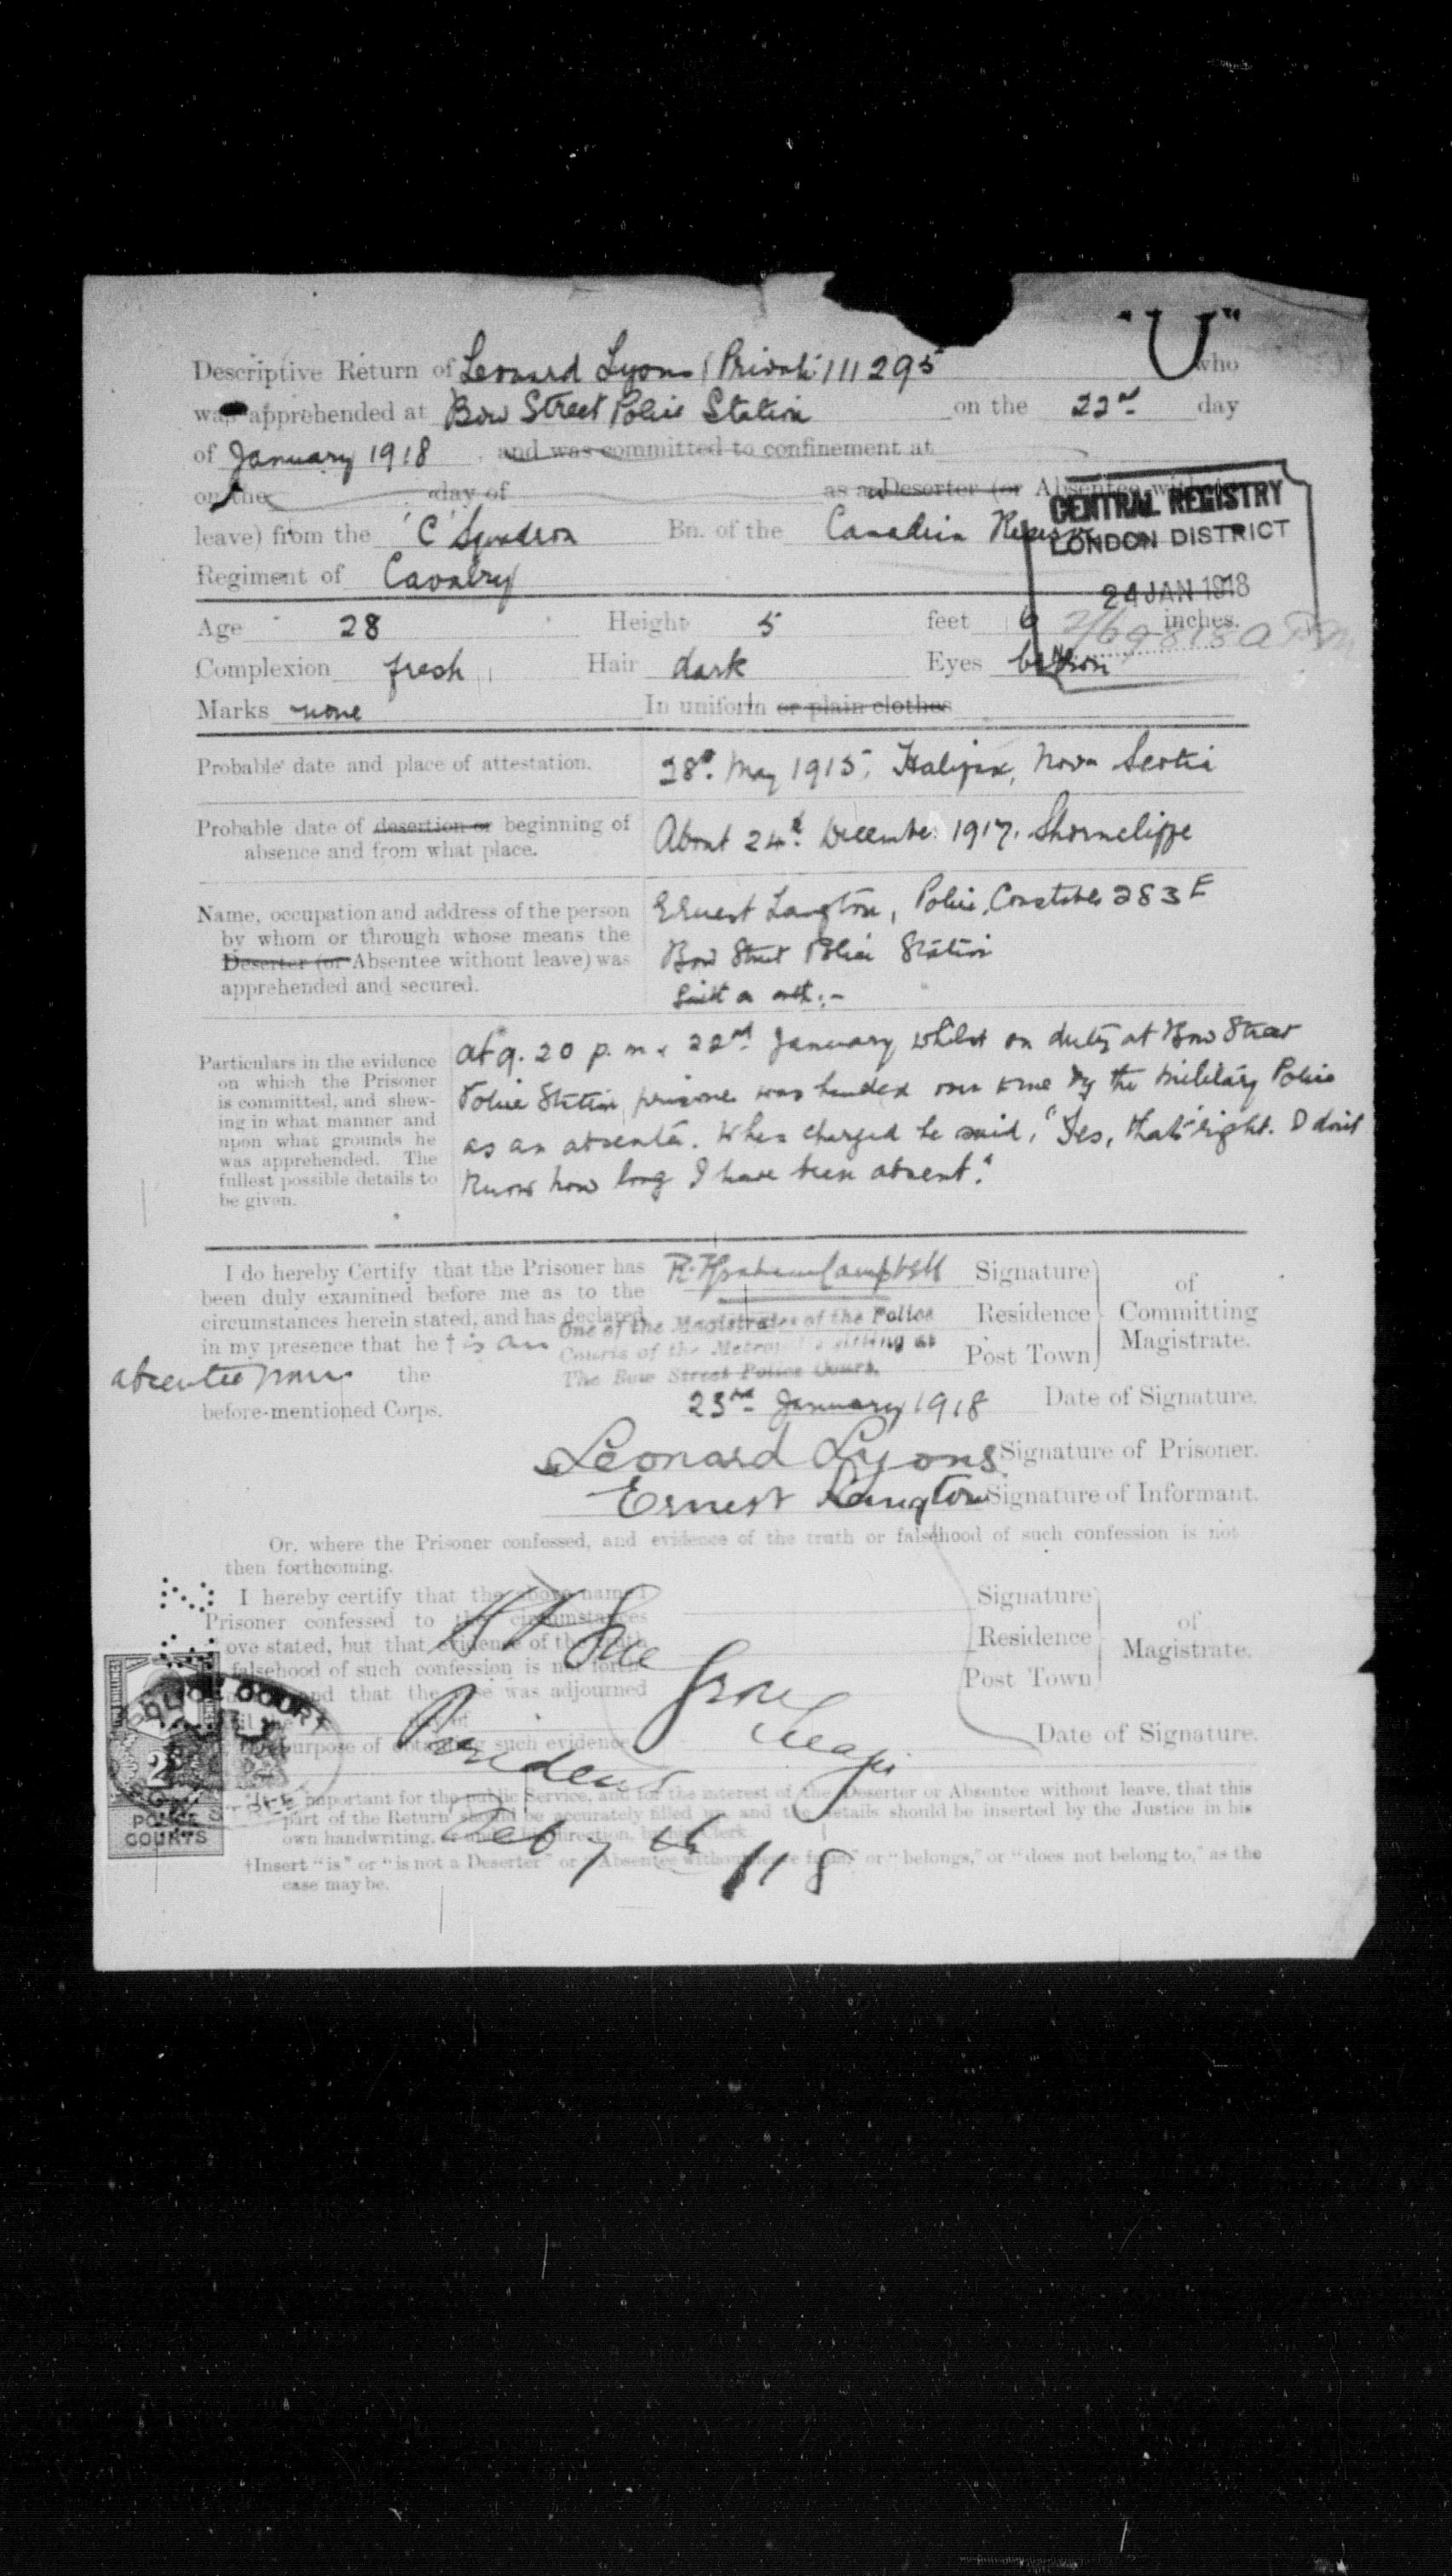 "U"
Descriptive Return of Leonard Lyons (Private) 111295 who
was apprehended at Bow Street Police Station on the 22nd day
of January 1918 and was committed to confinement at
on the day of as a Deserter (or Absentee without
leave) from the 'C' Squadron Bn. of the Canadian Reserve
Regiment of Cavalry
CENTRAL REGISTRY
LONDON DISTRICT
24 JAN 1918
Age 28 Height 5 feet 6 inches.
Complexion fresh Hair dark Eyes brown
Marks none In uniform or plain clothes
Probable date and place of attestation. 28th May 1915, Halifax, Nova Scotia
Probable date of desertion or beginning of
absence and from what place. About 24th December 1917. Shorncliffe
Name, occupation and address of the person
by whom or through whose means the
Deserter (or Absentee without leave) was
apprehended and secured.
Ernest Langton, Police Constable 283 E
Bow Street Police Station
Particulars in the evidence
on which the Prisoner
is committed, and shew-
ing in what manner and
upon what grounds he
was apprehended. The
fullest possible details to
be given.
at 9.20 p.m. 22nd January whilst on duty at Bow Street
Police Station prisoner was handed over to me by the Military Police
as an absentee. When charged he said, "Yes, that's right. I don't
know how long I have been absent."
I do hereby Certify that the Prisoner has
been duly examined before me as to the
circumstances herein stated, and has declared
in my presence that he † is an
absentee from the
before-mentioned Corps.
R. Graham Campbell Signature
One of the Magistrates of the Police Residence
Courts of the sitting at Post Town
The Bow Street Police Court.
of
Committing
Magistrate.
23rd January 1918 Date of Signature.
Leonard Lyons Signature of Prisoner.
Ernest Langton Signature of Informant.
Or, where the Prisoner confessed, and evidence of the truth or falsehood of such confession is not
then forthcoming.
I hereby certify that the above named
Prisoner confessed to the circumstances
ove stated, but that evidence of the truth
falsehood of such confession is not forth-
and that the case was adjourned
day of
purpose of obtaining such evidence.
Signature
Residence
Post Town
of
Magistrate.
Date of Signature.
President
Feb 7th /18
POLICE COURT
2
POLICE
COURTS
important for the public Service, and for the interest of the Deserter or Absentee without leave, that this
part of the Return should be accurately filled up, and the details should be inserted by the Justice in his
own handwriting, or under his direction, by his Clerk
†Insert "is" or "is not a Deserter" or "Absentee without leave from," or "belongs," or "does not belong to," as the
case may be.